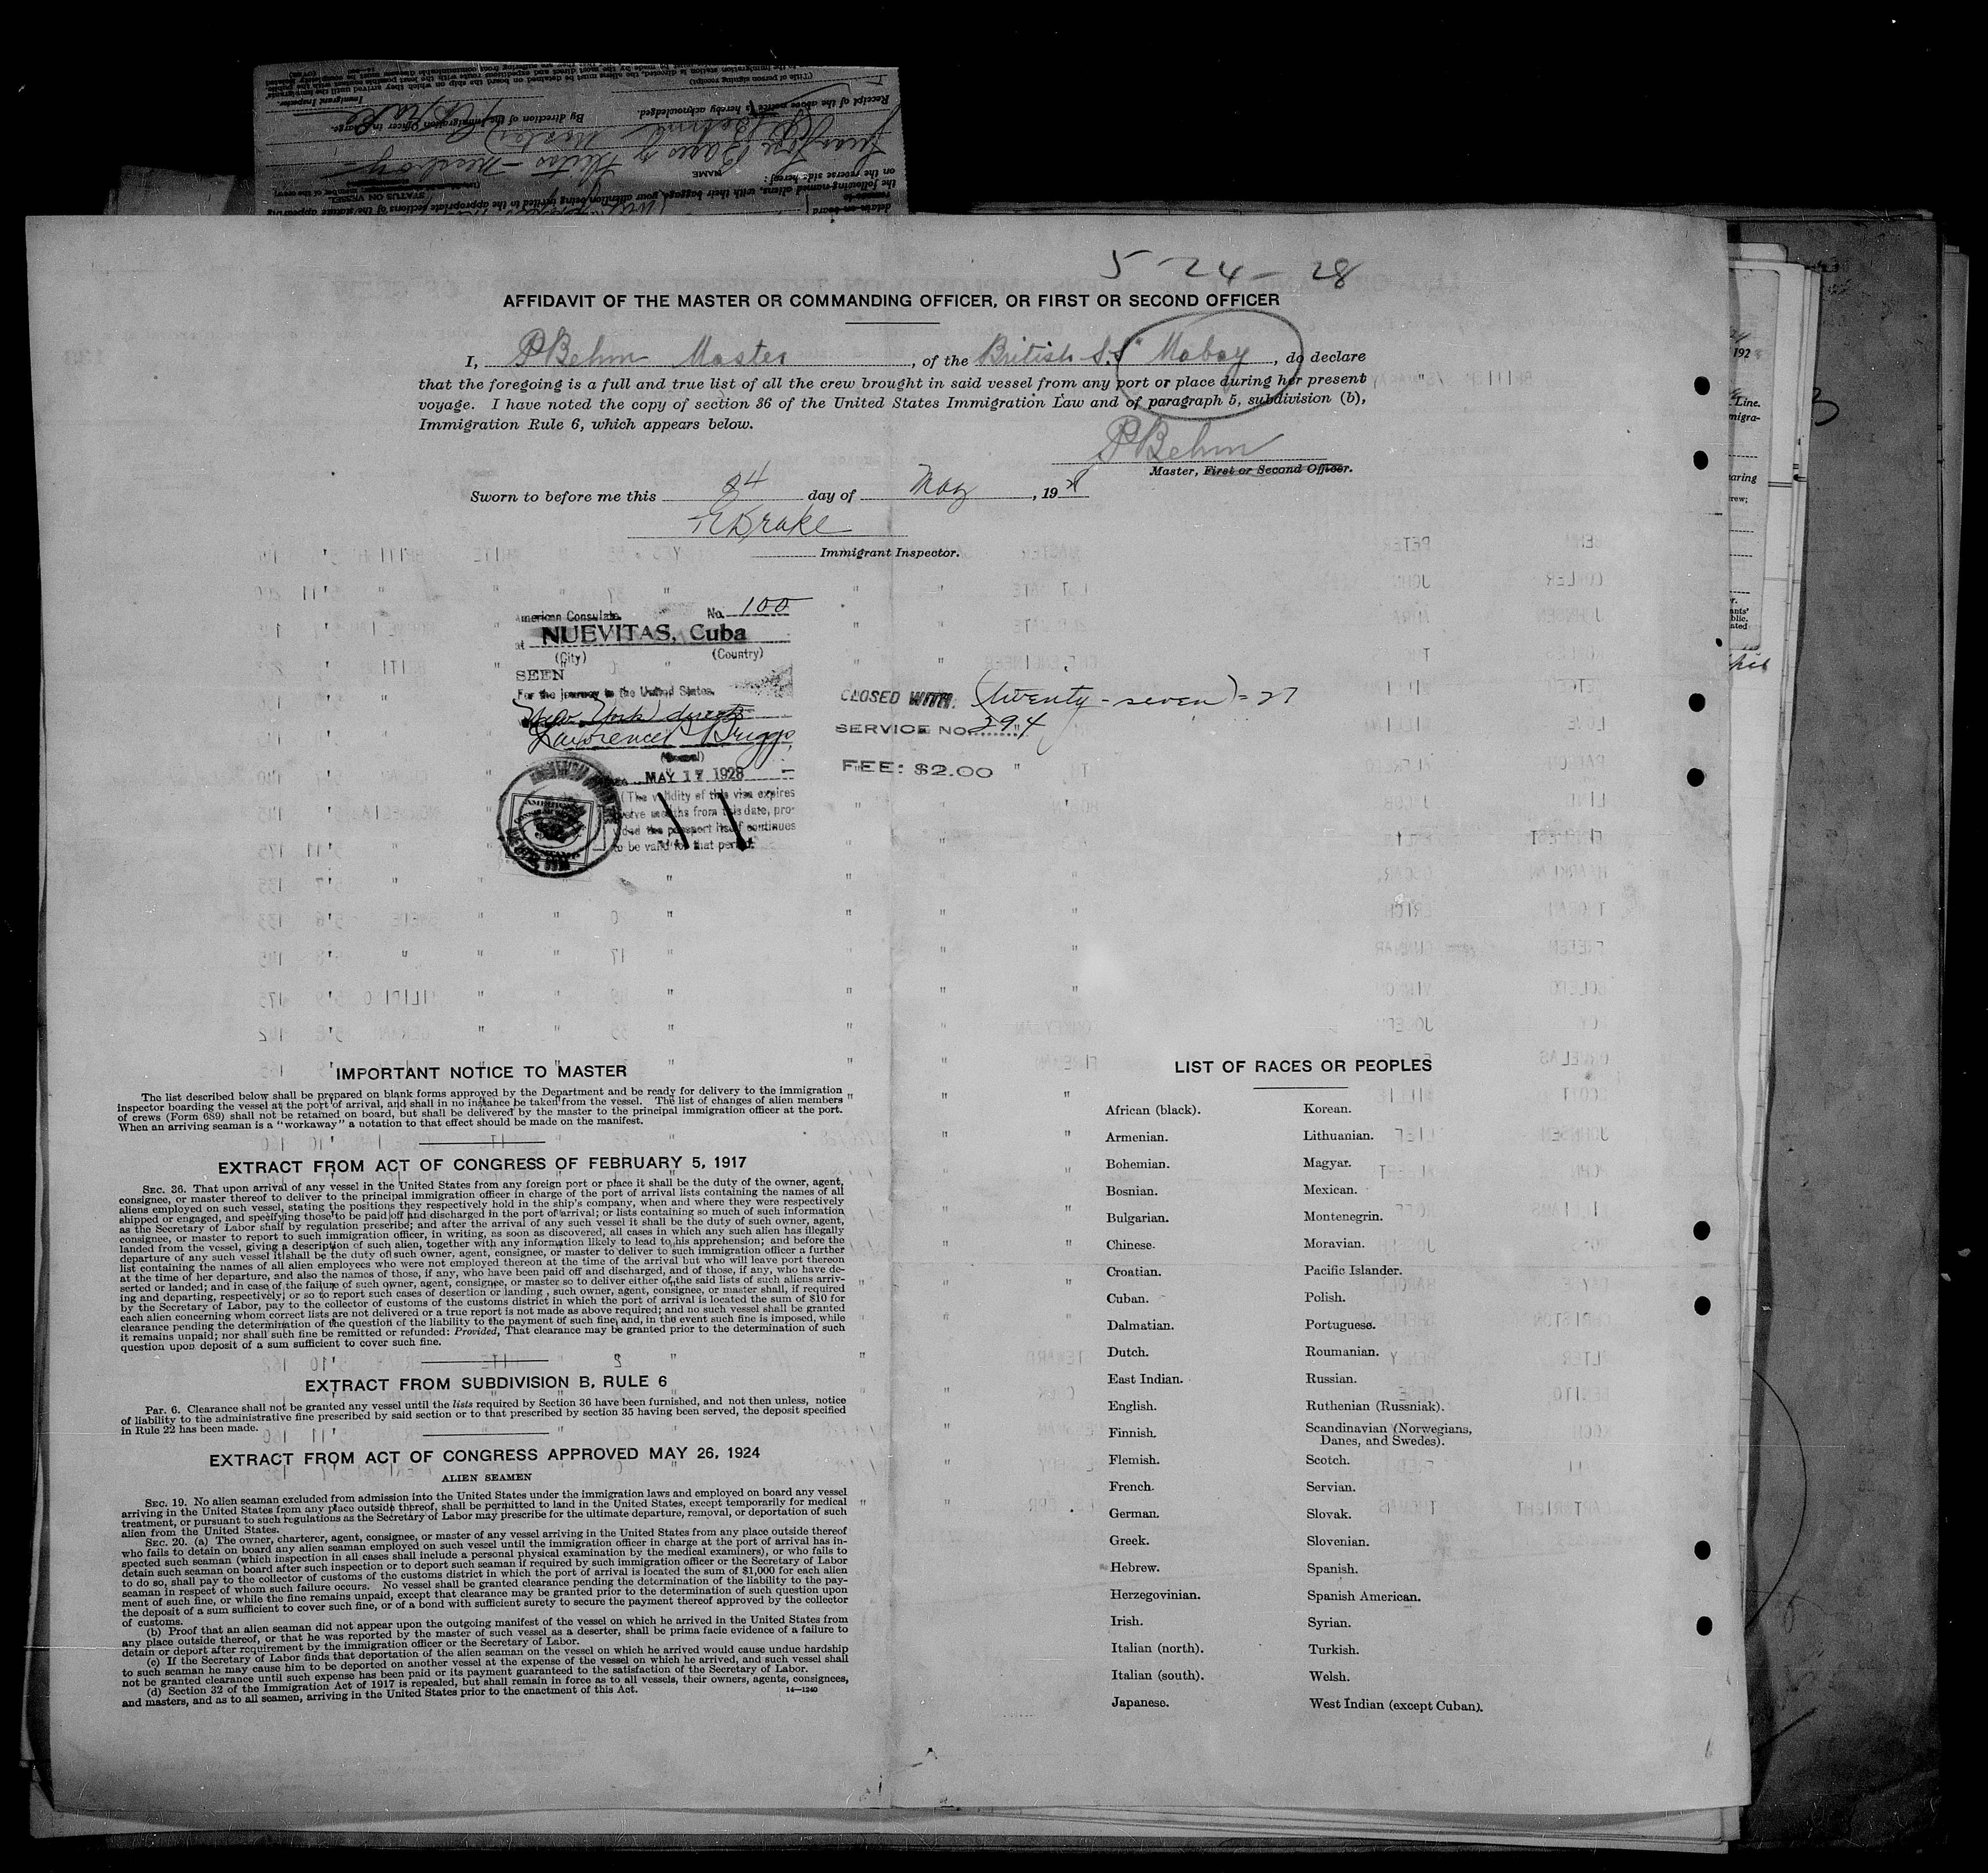 5-24-28
AFFIDAVIT OF THE MASTER OR COMMANDING OFFICER, OR FIRST OR SECOND OFFICER
I, PBehm Master, of the British S.S "Mabay, do declare
that the foregoing is a full and true list of all the crew brought in said vessel from any port or place during her present
voyage. I have noted the copy of section 36 of the United States Immigration Law and of paragraph 5, subdivision (b),
Immigration Rule 6, which appears below.
PBehm
Master, First or Second Officer.
Sworn to before me this 24 day of May, 1928
Drake
Immigrant Inspector.
American Consulate No. 100
at NUEVITAS, Cuba
(City) (Country)
SEEN
For the journey to the United States.
New York direct
Lawrence Briggs
(Consul)
MAY 17 1928
(The validity of this visa expires
twelve months from this date, pro-
vided the passport itself continues
to be valid for that period.
CLOSED WITH: (twenty-seven) = 27
SERVICE NO. 294
FEE: $2.00
IMPORTANT NOTICE TO MASTER
The list described below shall be prepared on blank forms approved by the Department and be ready for delivery to the immigration
inspector boarding the vessel at the port of arrival, and shall in no instance be taken from the vessel. The list of changes of alien members
of crews (Form 689) shall not be retained on board, but shall be delivered by the master to the principal immigration officer at the port.
When an arriving seaman is a "workaway" a notation to that effect should be made on the manifest.
EXTRACT FROM ACT OF CONGRESS OF FEBRUARY 5, 1917
SEC. 36. That upon arrival of any vessel in the United States from any foreign port or place it shall be the duty of the owner, agent,
consignee, or master thereof to deliver to the principal immigration officer in charge of the port of arrival lists containing the names of all
aliens employed on such vessel, stating the positions they respectively hold in the ship's company, when and where they were respectively
shipped or engaged, and specifying those to be paid off and discharged in the port of arrival; or lists containing so much of such information
as the Secretary of Labor shall by regulation prescribe; and after the arrival of any such vessel it shall be the duty of such owner, agent,
consignee, or master to report to such immigration officer, in writing, as soon as discovered, all cases in which any such alien has illegally
landed from the vessel, giving a description of such alien, together with any information likely to lead to his apprehension; and before the
departure of any such vessel it shall be the duty of such owner, agent, consignee, or master to deliver to such immigration officer a further
list containing the names of all alien employees who were not employed thereon at the time of the arrival but who will leave port thereon
at the time of her departure, and also the names of those, if any, who have been paid off and discharged, and of those, if any, who have de-
serted or landed; and in case of the failure of such owner, agent, consignee, or master so to deliver either of the said lists of such aliens arriv-
ing and departing, respectively, or so to report such cases of desertion or landing, such owner, agent, consignee, or master shall, if required
by the Secretary of Labor, pay to the collector of customs of the customs district in which the port of arrival is located the sum of $10 for
each alien concerning whom correct lists are not delivered or a true report is not made as above required; and no such vessel shall be granted
clearance pending the determination of the question of the liability to the payment of such fine, and, in the event such fine is imposed, while
it remains unpaid; nor shall such fine be remitted or refunded: Provided, That clearance may be granted prior to the determination of such
question upon deposit of a sum sufficient to cover such fine.
EXTRACT FROM SUBDIVISION B, RULE 6
Par. 6. Clearance shall not be granted any vessel until the lists required by Section 36 have been furnished, and not then unless, notice
of liability to the administrative fine prescribed by said section or to that prescribed by section 35 having been served, the deposit specified
in Rule 22 has been made.
EXTRACT FROM ACT OF CONGRESS APPROVED MAY 26, 1924
ALIEN SEAMEN
SEC. 19. No alien seaman excluded from admission into the United States under the immigration laws and employed on board any vessel
arriving in the United States from any place outside thereof, shall be permitted to land in the United States, except temporarily for medical
treatment, or pursuant to such regulations as the Secretary of Labor may prescribe for the ultimate departure, removal, or deportation of such
alien from the United States.
SEC. 20. (a) The owner, charterer, agent, consignee, or master of any vessel arriving in the United States from any place outside thereof
who fails to detain on board any alien seaman employed on such vessel until the immigration officer in charge at the port of arrival has in-
spected such seaman (which inspection in all cases shall include a personal physical examination by the medical examiners), or who fails to
detain such seaman on board after such inspection or to deport such seaman if required by such immigration officer or the Secretary of Labor
to do so, shall pay to the collector of customs of the customs district in which the port of arrival is located the sum of $1,000 for each alien
seaman in respect of whom such failure occurs. No vessel shall be granted clearance pending the determination of the liability to the pay-
ment of such fine, or while the fine remains unpaid, except that clearance may be granted prior to the determination of such question upon
the deposit of a sum sufficient to cover such fine, or of a bond with sufficient surety to secure the payment thereof approved by the collector
of customs.
(b) Proof that an alien seaman did not appear upon the outgoing manifest of the vessel on which he arrived in the United States from
any place outside thereof, or that he was reported by the master of such vessel as a deserter, shall be prima facie evidence of a failure to
detain or deport after requirement by the immigration officer or the Secretary of Labor.
(c) If the Secretary of Labor finds that deportation of the alien seaman on the vessel on which he arrived would cause undue hardship
to such seaman he may cause him to be deported on another vessel at the expense of the vessel on which he arrived, and such vessel shall
not be granted clearance until such expense has been paid or its payment guaranteed to the satisfaction of the Secretary of Labor.
(d) Section 32 of the Immigration Act of 1917 is repealed, but shall remain in force as to all vessels, their owners, agents, consignees,
and masters, and as to all seamen, arriving in the United States prior to the enactment of this Act.
14—1240
LIST OF RACES OR PEOPLES
African (black).
Armenian.
Bohemian.
Bosnian.
Bulgarian.
Chinese.
Croatian.
Cuban.
Dalmatian.
Dutch.
East Indian.
English.
Finnish.
Flemish.
French.
German.
Greek.
Hebrew.
Herzegovinian.
Irish.
Italian (north).
Italian (south).
Japanese.
Korean.
Lithuanian.
Magyar.
Mexican.
Montenegrin.
Moravian.
Pacific Islander.
Polish.
Portuguese.
Roumanian.
Russian.
Ruthenian (Russniak).
Scandinavian (Norwegians,
Danes, and Swedes).
Scotch.
Servian.
Slovak.
Slovenian.
Spanish.
Spanish American.
Syrian.
Turkish.
Welsh.
West Indian (except Cuban).